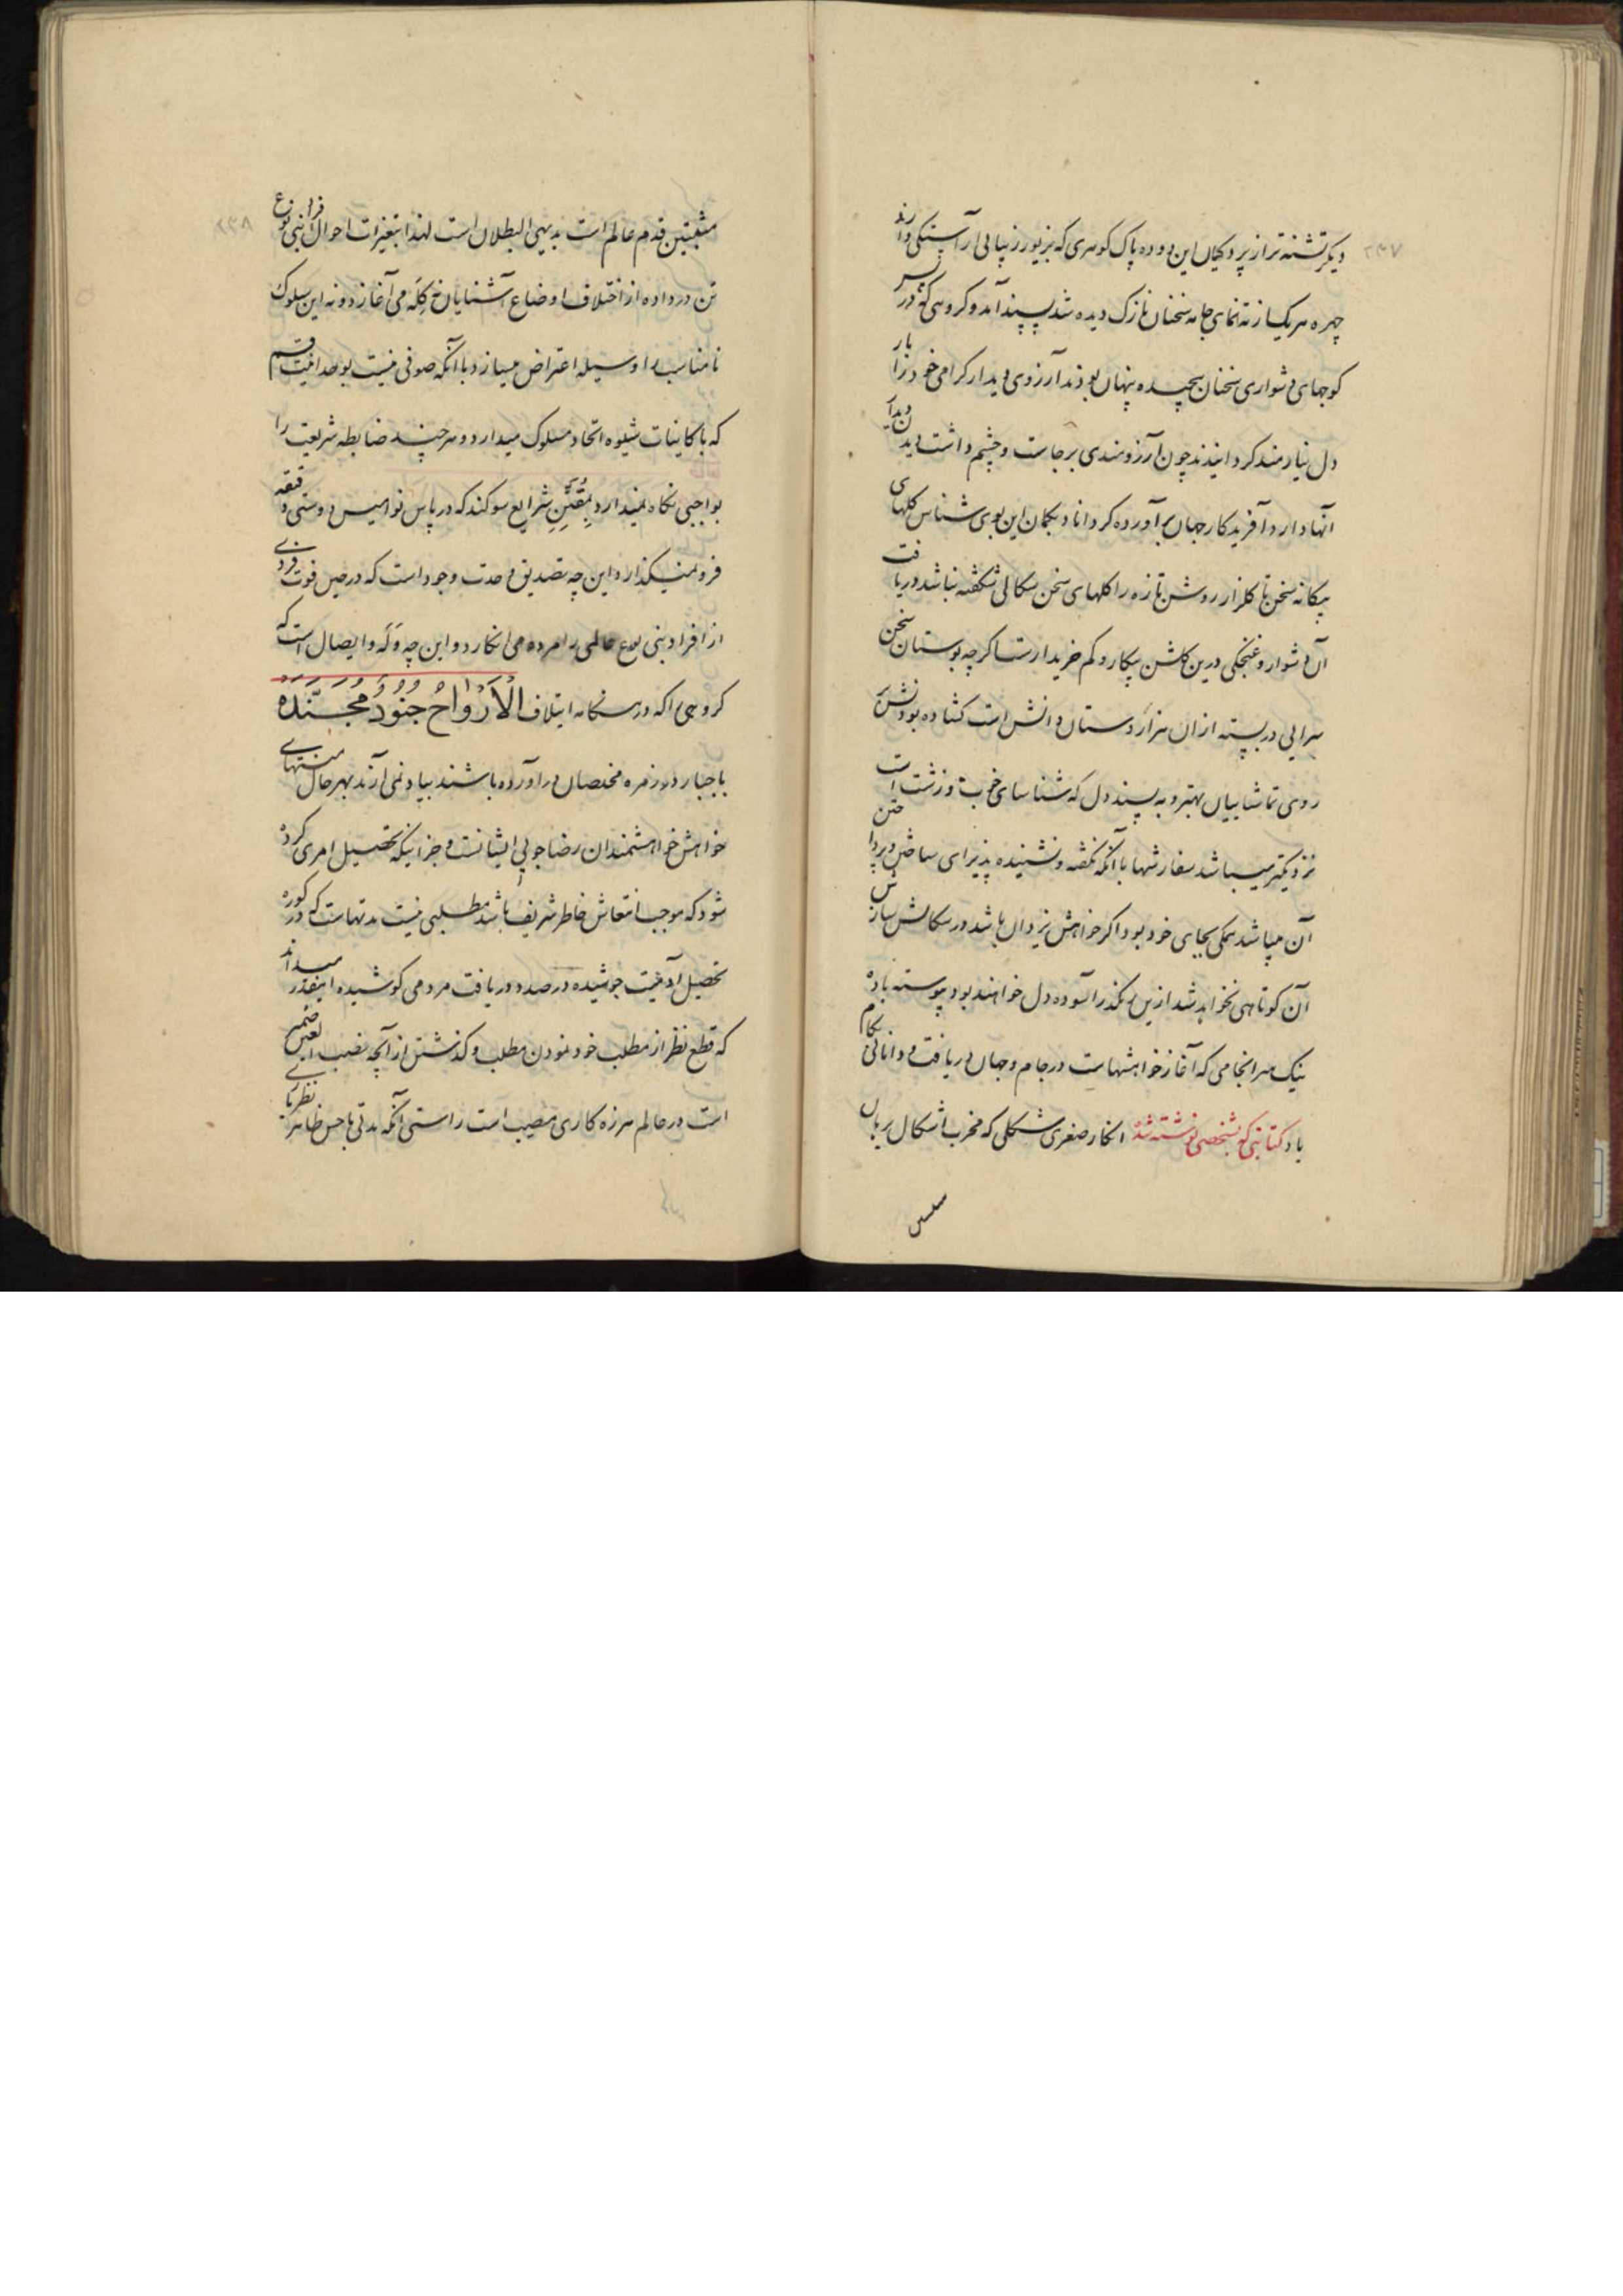 ۲۳۷
دیگر تشنه تر از پردگیان این دوده پاک گوهری که بزیور زیبایی آراستگی دارند
چهره هر یک از ته نمای جامه سخنان نازک دیده شد پسند آمد و گروهی که در پس
کوچهای دشواری سخنان پیچیده پنهان بودند آرزوی دیدار گرامی خود را بار
دل نیازمند گردانیدند چون آرزومندی برجاست و چشم داشت دیدن دیدار
آنها دارد آفریدگار جهان برآورده گرداناد بگمان این بوی شناس گلهای
بیگانه سخن تا گلزار روشن تازه را گلهای سخن سگالی شگفته نباشد دریافت
آن دشوار و غنچگی درین گلشن بیکار و کم خریدارست اگرچه بوستان سخن
سرایی در بسته از ان هزار دستان دانش است گشاده بودنش
روی تماشاییان بهتر و به پسند دل که شناسای خوب و زشت است
نزدیکتر میباشد سفارشها با آنکه نگفته و نشنیده پذیرای ساختن و پرداختن
آن میباشد همگی بجای خود بود اگر خواهش یزدان باشد در سگالش ساز
آن کوتاهی نخواهد شد ازین رهگذر آسوده دل خواهند بود پیوسته باده
نیک سرانجامی که آغاز خواهشهاست در جام و جهان دریافت و دانائی بکام
باد کتابتی که بشخصی نوشته شد انگار صغری شکلی که مخرب اشکال برهان
۲۳۸
مثبتین قدم عالم است بدیهی البطلان است لهذا بتغیرات احوال افراد بنی نوع
تن در داده از اختلاف اوضاع آشنایان خ گله می آغازد و نه این سلوک
نامناسب را وسیله اعتراض میسازد با آنکه صوفی نیست بوحدانیت قسم
که با کاینات شیوه اتحاد مسلوک میدارد و هر چند ضابطه شریعت را
بواجبی نگاه نمیدارد بمقنن شرایع سوگند که در پاس نوامیس دوستی دقیقه
فرو نمیگذارد این چه تصدیق وحدت وجود است که در حین فوت فردی
از افراد بنی نوع عالمی را مرده می انگارد و این چه وله و ایصال است که
گروهی را که در هنگامه ایتلاف الْأَرْوَاحُ جُنُودٌ مُجَنَّدَهْ
باجبار در زمره مختصان در آورده باشند بیاد نمی آرند بهر حال منتهای
خواهش خواهشمندان رضا جویی ایشانست و جز اینکه تحصیل امری کرده
شود که موجب انتعاش خاطر شریف باشد مطلبی نیست مدتهاست که در کوره
تحصیل آدمیت جوشیده در صدد دریافت مردمی کوشیده اینقدر میداند
که قطع نظر از مطلب خود نمودن مطلب و گذشتن از آنچه نصب العین ضمیر
است در عالم هرزه کاری مصیب است راستی آنکه مدتی با حس ظاهر نظر بازی